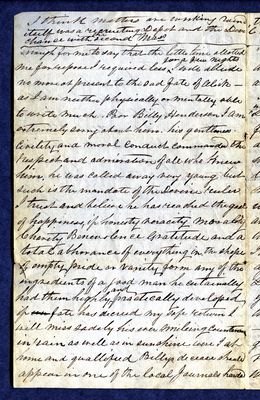 I think matters are
itself was a recruiting Depot and the
chance with second
enough for me to say that the little time allotted
for a few nights
me for repose I required less, I will allude
no more at present to the sad fate of
as I am neither physically or mentally able
to write much. Poor Billy Henderson I am
extremely sorry about him. his gentleness
Civility and moral conduct commanded the
respect and admiration of all who knew
him, he was called away very young but
such is the mandate of the Divine ruler
I trust and believe he has reached the goal
of happiness, if honesty veracity Morality
Charity Benevolence Gratitude and a
total abhorance of everything in the shape
of empty pride or vanity form any of the
ingredients of a good man he certainly
had them highly and practically developed
if fate has decreed my safe return I
will miss sadely his ever smileing
in rain as well as in sunshine
some and qualified Billys decease should
appear in one of the local Journals